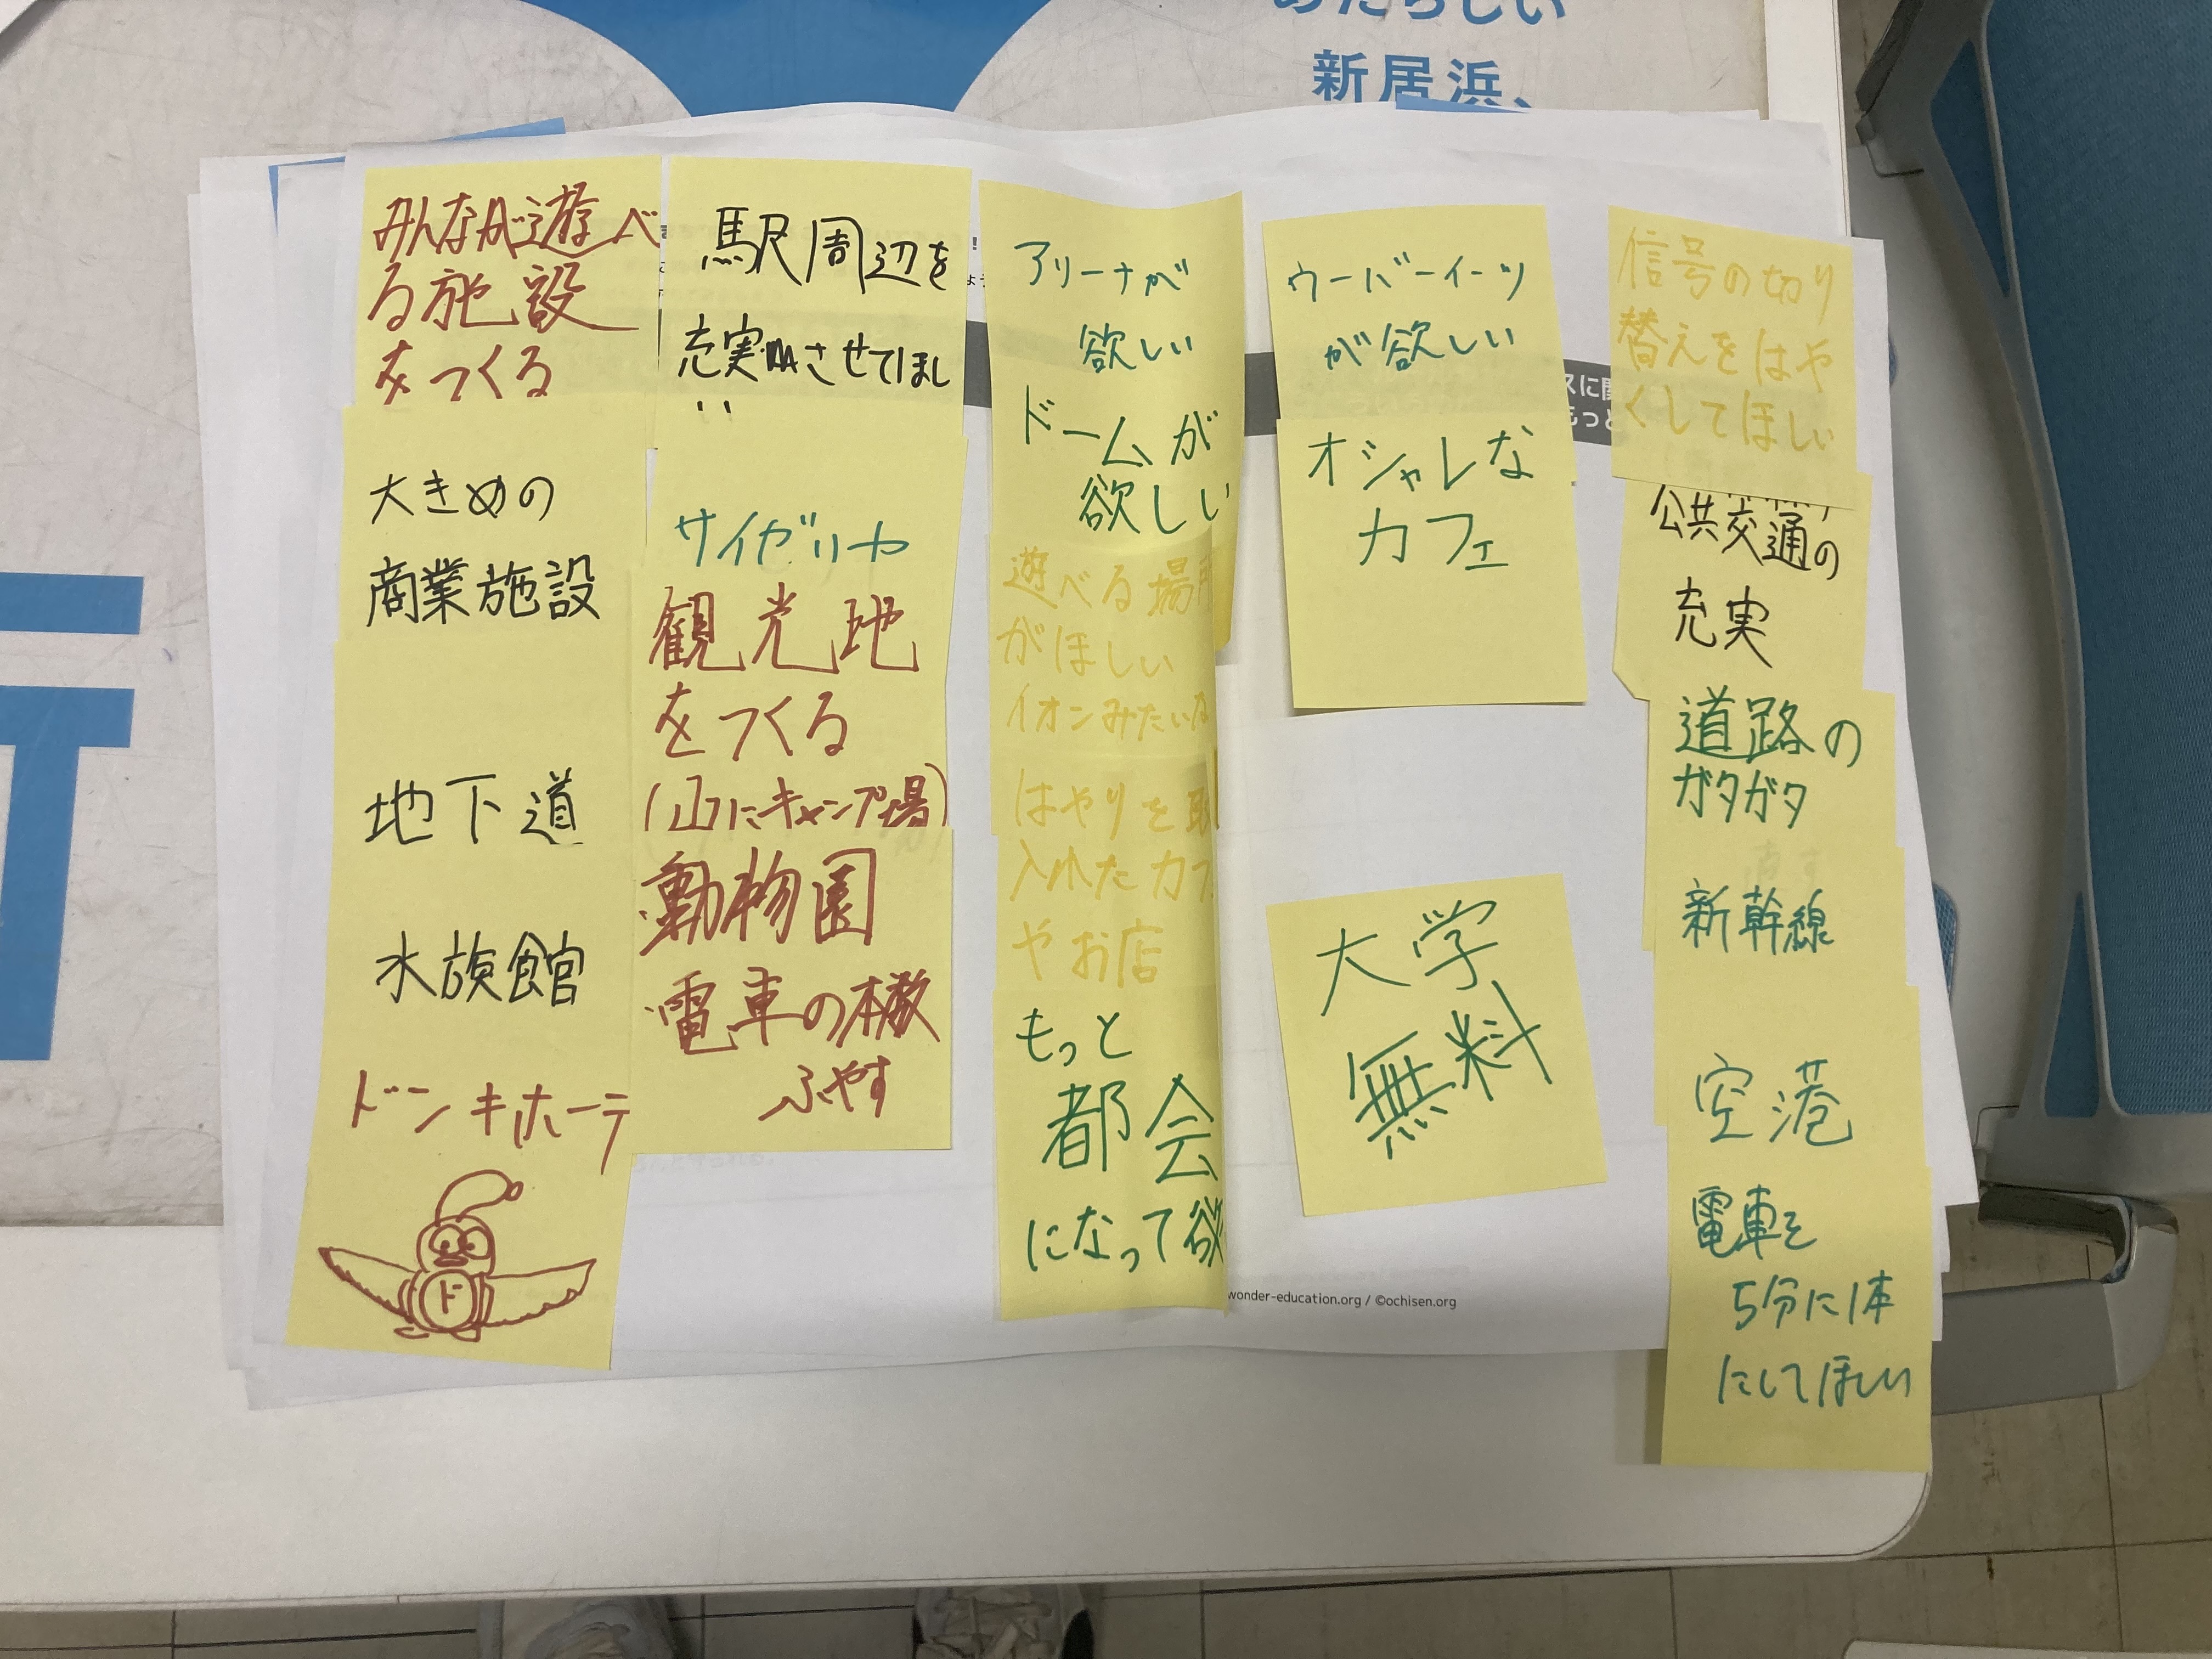 あたらしい
新居浜、
みんなが遊べ
る施設
をつくる
大きめの
商業施設
地下道
水族館
ドンキホーテ
ド
駅周辺を
充実させてほし
い
サイゼリヤ
観光地
をつくる
(山にキャンプ場)
動物園
電車の本数
ふやす
アリーナが
欲しい
ドームが
欲しい
遊べる場所
がほしい
イオンみたいな
はやりを取
入れたカフ
やお店
もっと
都会
になって欲
ウーバーイーツ
が欲しい
オシャレな
カフェ
大学
無料
スに関
もっと
信号の切り
替えをはや
くしてほしい
公共交通の
充実
道路の
ガタガタ
直す
新幹線
空港
電車を
5分に1本
にしてほしい
wonder-education.org / ©ochisen.org